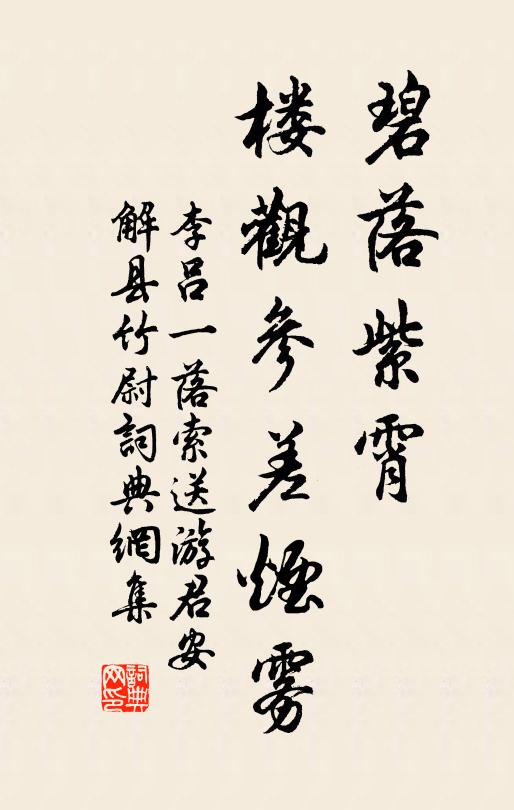 碧落紫霄
楼觀參差煙雾
李吕一落索送游君安
解县竹尉詞典網集
詞典
网印